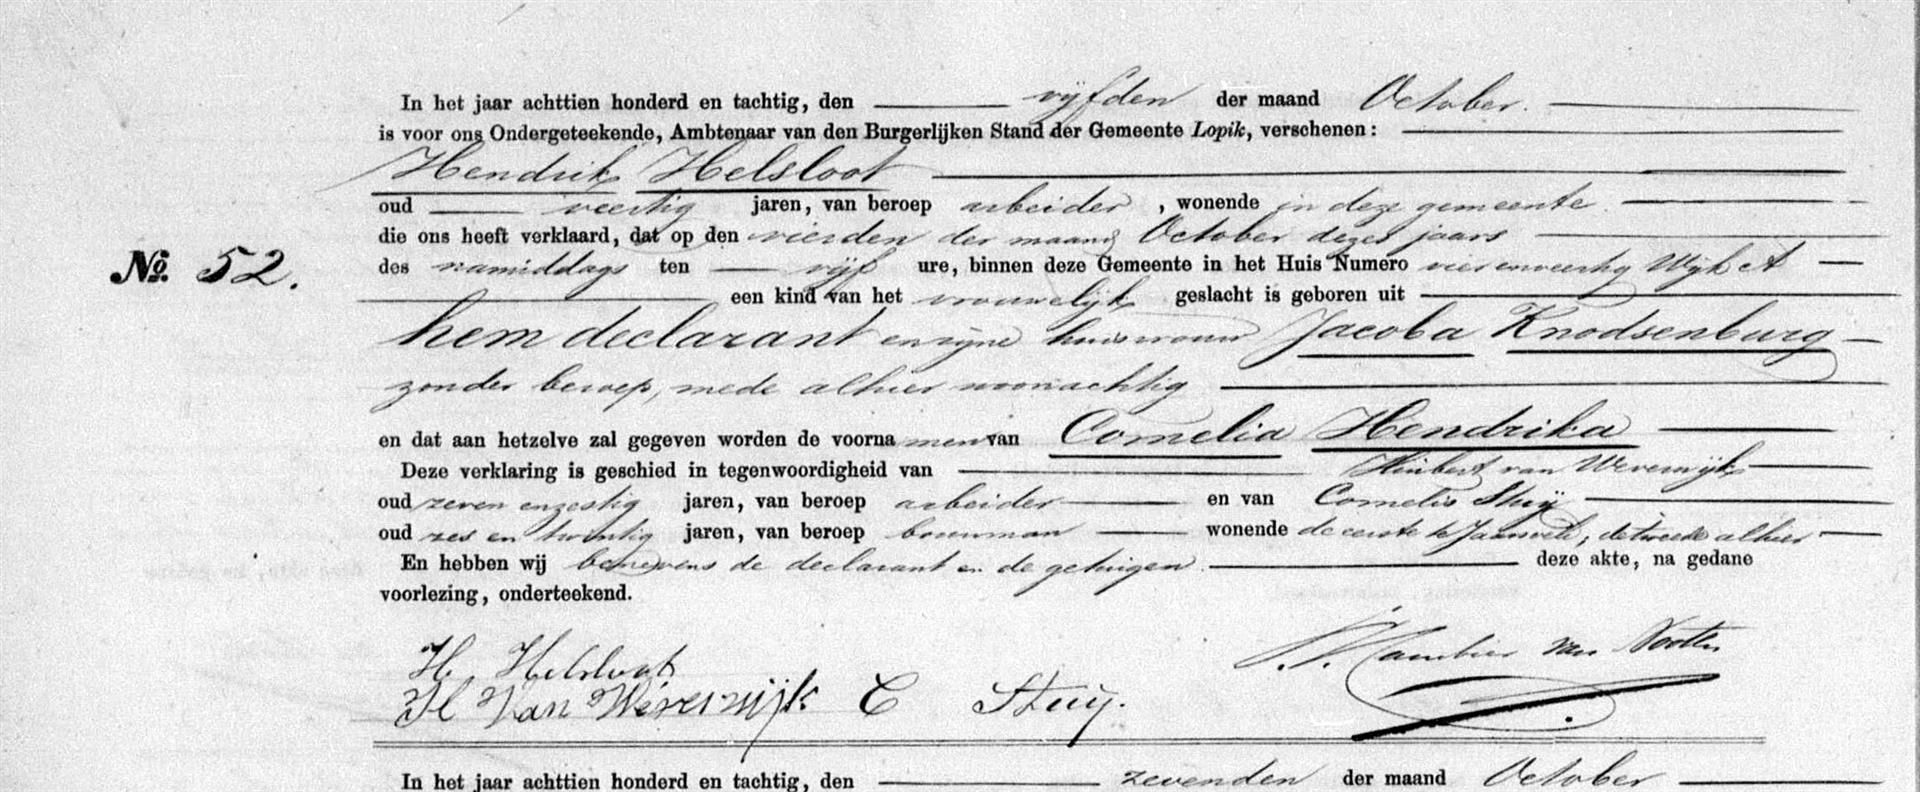 In het jaar achttien honderd en tachtig, den vijfden der maand October.
is voor ons Ondergeteekende, Ambtenaar van den Burgerlijken Stand der Gemeente Lopik, verschenen:
Hendrik Helsloot
oud veertig jaren, van beroep arbeider, wonende in deze gemeente
die ons heeft verklaard, dat op den vierden der maand October dezes jaars
No. 52.
des namiddags ten vijf ure, binnen deze Gemeente in het Huis Numero vierenveertig Wijk A
een kind van het vrouwelijk geslacht is geboren uit
hem declarant en zijne huisvrouw Jacoba Knodsenburg
zonder beroep, mede alhier woonachtig
en dat aan hetzelve zal gegeven worden de voornamen van Cornelia Hendrika
Deze verklaring is geschied in tegenwoordigheid van Huibert van Weverwijk
oud zeven en zestig jaren, van beroep arbeider en van Cornelis Stuij
oud zes en twintig jaren, van beroep bouwman wonende de eerste te Jaarsveld, de tweede alhier
En hebben wij benevens de declarant en de getuigen deze akte, na gedane
voorlezing, onderteekend.
H. Helsloot
H Van Weverwijk C Stuij.
van Nooten
In het jaar achttien honderd en tachtig, den zevenden der maand October